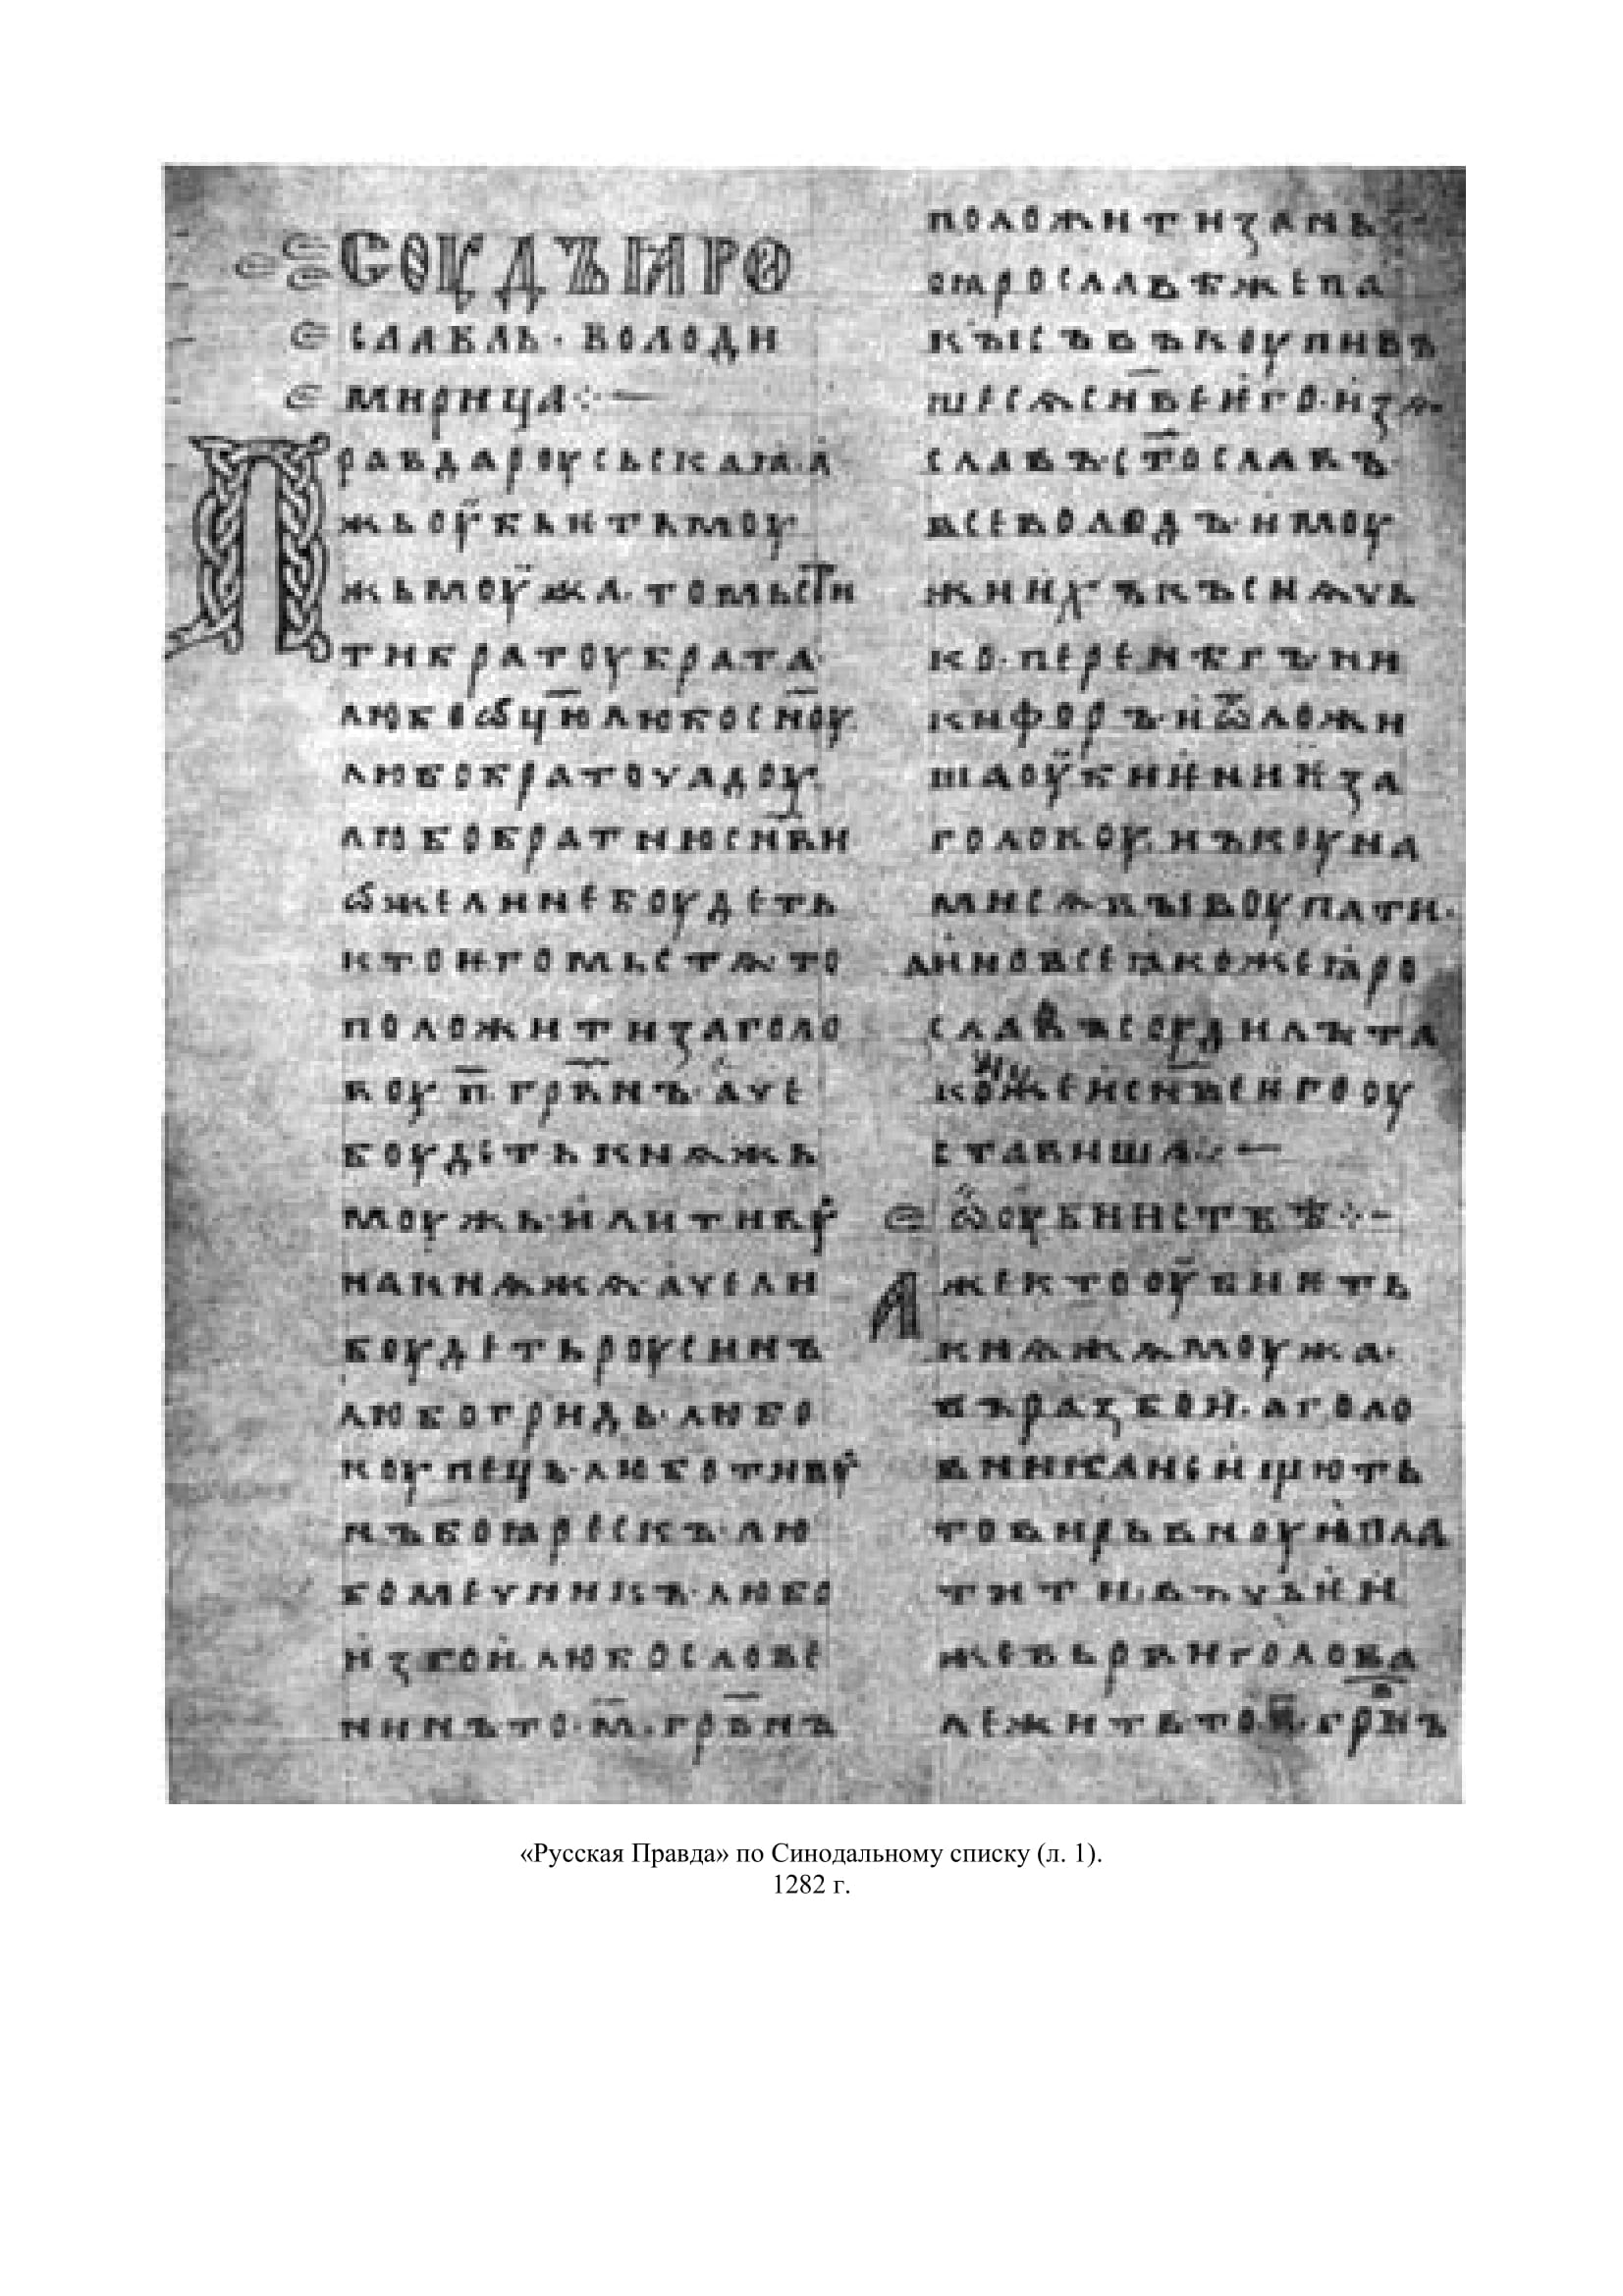 СОУДЪ ꙖРО
СЛАВЛЬ · ВОЛОДИ
МИРИЦА ⁘ —
Правда роусьскаꙗ · а
жь оубьѥть моу
жь моужа · то мьсти
ти братоу брата ·
любо ѡц҃ю любо сн҃оу
любо братоучадоу ·
любо братню сн҃ви
ѡже ли не боудеть
кто ѥго мьстѧ то
положити за голо
воу · п҃ · грв҃нъ · аче
боудеть кнѧжь
моужь · или тивоу
на кнѧжѧ · аче ли
боудеть роусинъ
любо гридь · любо
коупець · любо тивоу
нъ боꙗрескъ · лю
бо мечникъ · любо
изгои · любо слове
нинъ то · м҃ · грв҃нъ
положити за нь ⁘
о ꙗрославѣ же па
кы съвъкоупивъ
ше сѧ сн҃ве ѥго · изѧ
славъ · ст҃ославъ ·
всеволодъ · и моу
жи ихъ къснѧчь
ко · перенѣгъ · ни
кифоръ · и ѿложи
ша оубиѥниѥ за
голокоу · нъ коуна
ми сѧ выкоупати ·
а ино все ꙗкоже ꙗро
славъ соудилъ та
коже и сн҃ве ѥго оу
ставиша ⁘ —
ѡ оубииствѣ ⁘ -
Аже кто оубиѥть
кнѧжѧ моужа ·
въ разбои · а голо
вника не ищють
то вирьвноую пла
тити · въ чьѥи
же вьрви голова
лежить то · п҃ · грв҃нъ
«Русская Правда» по Синодальному списку (л. 1).
1282 г.